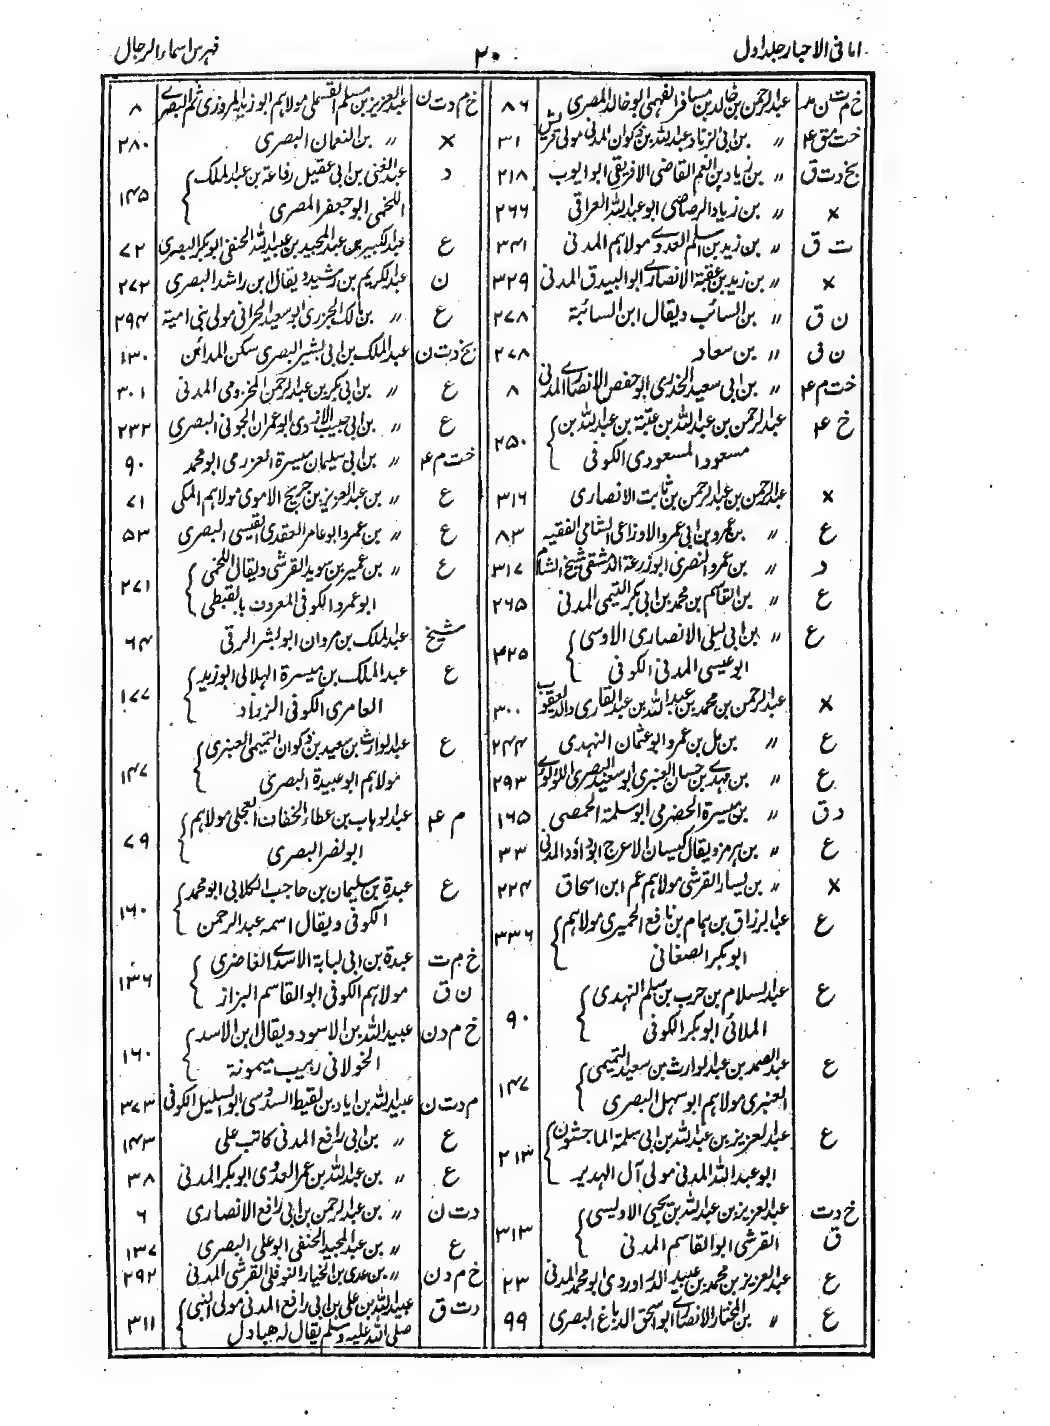 امانی الاحبار جلد اول
۲۰
فہرس اسماء الرجال
خ م ت ن مد عبد الرحمن بن خالد بن مسافر الفہمی ابو خالد المصری ۸۶
خت مق ۴ 〃 بن ابی الزناد عبد اللہ بن ذکوان المدنی مولی قریش ۳۱
بخ د ت ق 〃 بن زیاد بن انعم القاضی الافریقی ابو ایوب ۲۱۸
× 〃 بن زیاد الرصاصی ابو عبد اللہ العراقی ۲۶۶
ت ق 〃 بن زید بن اسلم العدوی مولاہم المدنی ۳۴۱
× 〃 بن زید بن عقبۃ الانصاری ابو البیدق المدنی ۳۲۹
ن ق 〃 بن السائب ویقال ابن السائبۃ ۲۷۸
ن ق 〃 بن سعاد ۲۷۸
خت م ۴ 〃 بن ابی سعید الخدری ابو حفص الانصاری المدنی ۸
خ ۴ عبد الرحمن بن عبد اللہ بن عتبۃ بن عبد اللہ بن
مسعود المسعودی الکوفی ۲۵۰
× عبد الرحمن بن عبد الرحمن بن ثابت الانصاری ۳۱۶
ع 〃 بن عمرو بن ابی عمرو الاوزاعی الشامی الفقیہ ۸۳
د 〃 بن عمرو النصری ابو زرعۃ الدمشقی شیخ الشام ۳۱۷
ع 〃 بن القاسم بن محمد بن ابی بکر التیمی المدنی ۲۶۵
ع 〃 بن ابی لیلی الانصاری الاوسی
ابو عیسی المدنی الکوفی ۴۲۵
× عبد الرحمن بن محمد بن عبد اللہ بن عبد القاری والد یعقوب ۳۰۰
ع 〃 بن مل بن عمرو ابو عثمان النہدی ۲۴۴
ع 〃 بن مہدی بن حسان العنبری ابو سعید البصری اللؤلوی ۲۹۳
د ق 〃 بن میسرۃ الحضرمی ابو سلمۃ الحمصی ۱۶۵
ع 〃 بن ہرمز ویقال کیسان الاعرج ابو داؤد المدنی ۳۳
× 〃 بن یسار القرشی مولاہم عم ابن اسحاق ۲۲۴
ع عبد الرزاق بن ہمام بن نافع الحمیری مولاہم
ابو بکر الصنعانی ۳۳۶
ع عبد السلام بن حرب بن سلم النہدی
الملائی ابو بکر الکوفی ۹۰
ع عبد الصمد بن عبد الوارث بن سعید التمیمی
العنبری مولاہم ابو سہل البصری ۱۴۷
ع عبد العزیز بن عبد اللہ بن ابی سلمۃ الماجشون
ابو عبد اللہ المدنی مولی آل الہدیر ۲۱۳
خ د ت ق عبد العزیز بن عبد اللہ بن یحیی الاویسی
القرشی ابو القاسم المدنی ۳۱۳
ع عبد العزیز بن محمد بن عبید الدراوردی ابو محمد المدنی ۲۳
ع 〃 بن المختار الانصاری ابو اسحق الدباغ البصری ۹۹
خ م د ت ن عبد العزیز بن مسلم القسملی مولاہم ابو زید المروزی ثم البصری ۸
× 〃 بن النعمان البصری ۲۸۰
د عبد الغنی بن ابی عقیل رفاعۃ بن عبد الملک
اللخمی ابو جعفر المصری ۱۴۵
ع عبد الکبیر بن عبد المجید بن عبید اللہ الحنفی ابو بکر البصری ۷۲
ن عبد الکریم بن رشید ویقال ابن راشد البصری ۲۷۲
ع 〃 بن مالک الجزری ابو سعید الحرانی مولی بنی امیۃ ۲۹۴
بخ د ت ن عبد الملک بن ابی بشیر البصری سکن المدائن ۱۳۰
ع 〃 بن ابی بکر بن عبد الرحمن المخزومی المدنی ۳۰۱
ع 〃 بن ابی حبیب الازدی ابو عمران الجونی البصری ۲۳۲
خت م ۴ 〃 بن ابی سلیمان میسرۃ العزرمی ابو محمد ۹۰
ع 〃 بن عبد العزیز بن جریج الاموی مولاہم المکی ۷۱
ع 〃 بن عمرو ابو عامر العقدی القیسی البصری ۵۳
ع 〃 بن عمیر بن سوید القرشی ویقال اللخمی
ابو عمرو الکوفی المعروف بالقبطی ۲۷۱
شیخ عبد الملک بن مروان ابو بشر الرقی ۶۴
ع عبد الملک بن میسرۃ الہلالی ابو زید
العامری الکوفی الزراد ۱۷۷
ع عبد الوارث بن سعید بن ذکوان التمیمی العنبری
مولاہم ابو عبیدۃ البصری ۱۴۷
م ۴ عبد الوہاب بن عطاء الخفاف العجلی مولاہم
ابو نصر البصری ۷۹
ع عبدۃ بن سلیمان بن حاجب الکلابی ابو محمد
الکوفی ویقال اسمہ عبد الرحمن ۱۶۰
خ م ت ن ق عبدۃ بن ابی لبابۃ الاسدی الغاضری
مولاہم الکوفی ابو القاسم البزاز ۱۳۶
خ م د ن عبید اللہ بن الاسود ویقال ابن الاسد
الخولانی ربیب میمونۃ ۱۶۰
م د ت ن عبید اللہ بن ایاد بن لقیط السدوسی ابو السلیل الکوفی ۳۷۳
ع 〃 بن ابی رافع المدنی کاتب علی ۱۴۳
ع 〃 بن عبد اللہ بن عمر العدوی ابو بکر المدنی ۳۸
د ت ن 〃 بن عبد الرحمن بن ابی رافع الانصاری ۶
ع 〃 بن عبد المجید الحنفی ابو علی البصری ۱۳۷
خ م د ن 〃 بن عدی بن الخیار النوفلی القرشی المدنی ۲۹۲
د ت ق عبید اللہ بن علی بن ابی رافع المدنی مولی النبی
صلی اللہ علیہ وسلم یقال لہ عبادل ۳۱۱